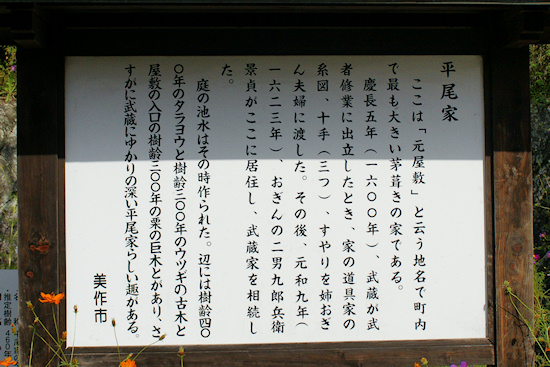 平尾家
ここは「元屋敷」と云う地名で町内
で最も大きい茅葺きの家である。
慶長五年（一六〇〇年）、武蔵が武
者修業に出立したとき、家の道具家の
系図、十手（三つ）、すやりを姉おぎ
ん夫婦に渡した。その後、元和九年（
一六二三年）、おぎんの二男九郎兵衛
景貞がここに居住し、武蔵家を相続し
た。
庭の池水はその時作られた。辺には樹齢四〇
〇年のタラヨウと樹齢二〇〇年のウツギの古木と
屋敷の入口の樹齢三〇〇年の栗の巨木とがあり、さ
すがに武蔵にゆかりの深い平尾家らしい趣がある。
美作市
・推定樹齢 460年